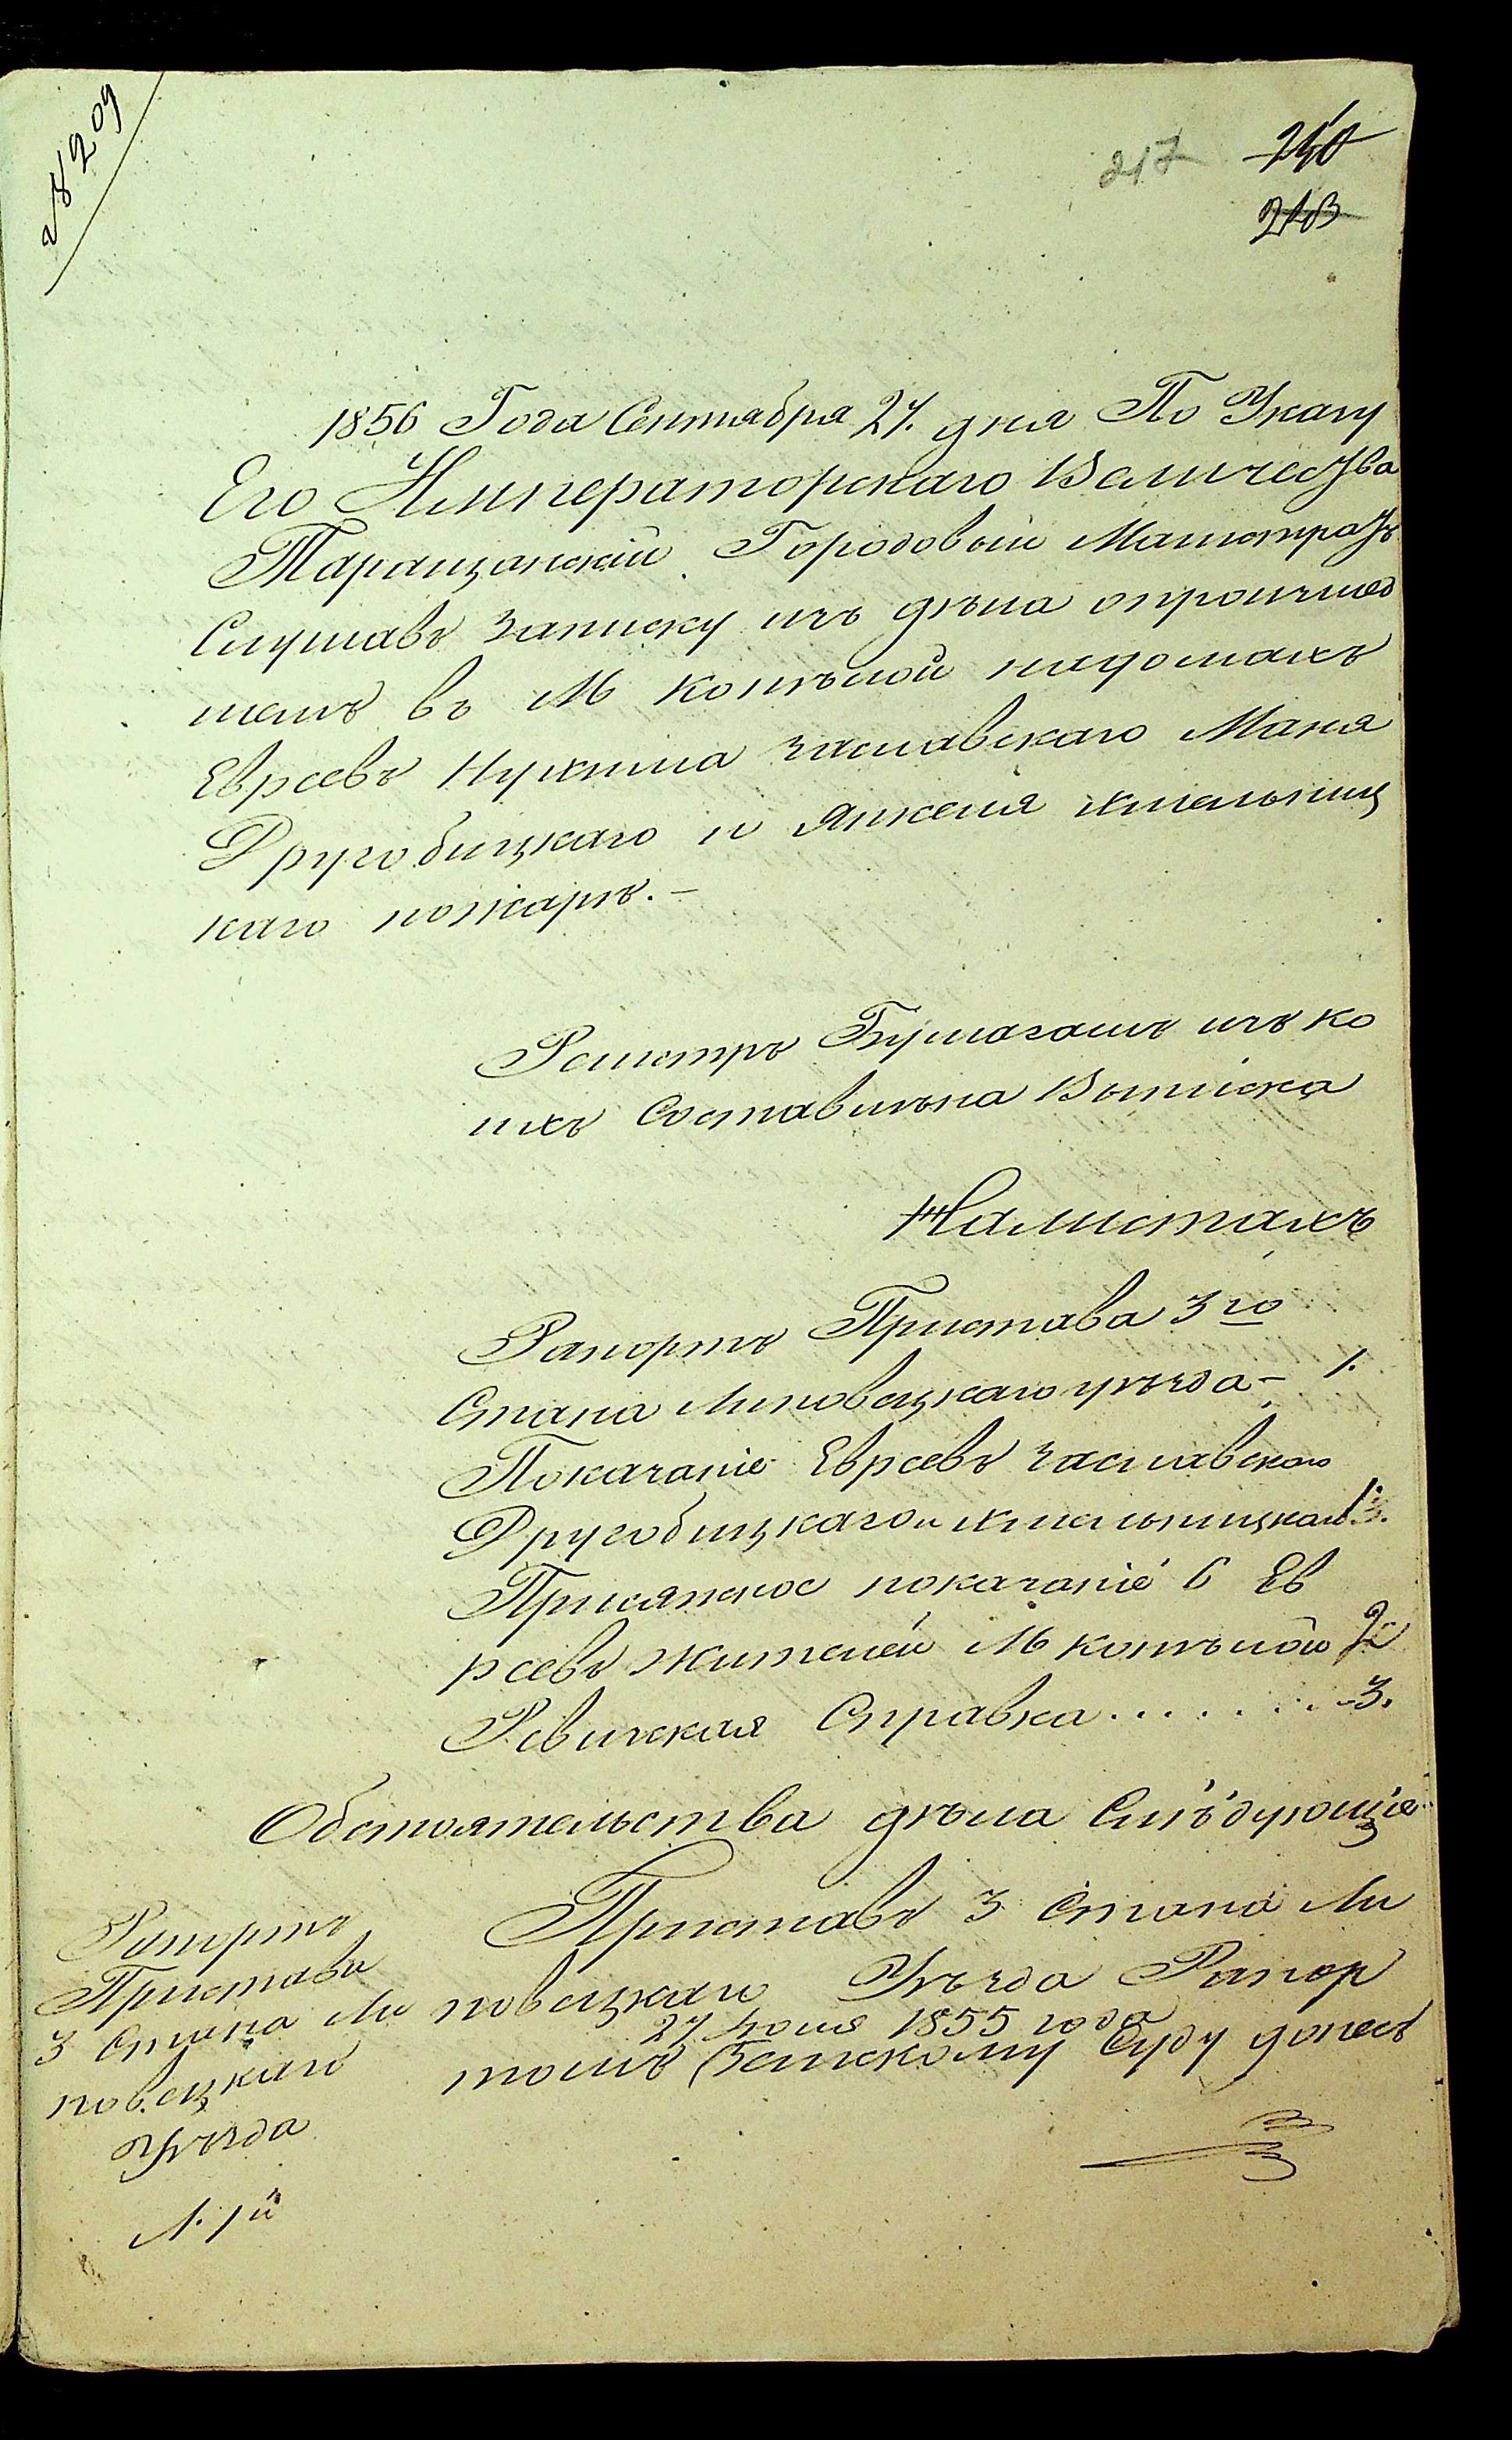 № 209
217 210
213
1856 Года Сентября 27. дня По Указу
Его Императорскаго Величества
Таращанскій Городовый Магистратъ
Слушавъ записку изъ дѣла опроизшед
шемъ въ М Конѣлой надомахъ
Евреевъ Нухима Заславскаго Маня
Другобицкаго и Янкеля Хмельниц
каго пожарѣ.—
Реистръ Бумагамъ изъ ко
ихъ Составлѣна Выписка
Налистахъ
Рапортъ Пристава 3го
Стана Липовецкаго уѣзда— 1.
Показаніе Евреевъ Заславскаго
Другобицкаго и Хмельницкаго 1. 3.
Присяжное показаніе 6 Ев
реевъ жителей М Конѣлой 2
Ревизская Справка....... 3.
Обстоятельства дѣла Слѣдующіе
Рапортъ
Пристава
3 Стана Ли
повецкаго
Уѣзда
Л. 1й
Приставъ 3 Стана Ли
повецкаго Уѣзда Рапор
27 Іюля 1855 года
томъ Земскому Суду донесъ